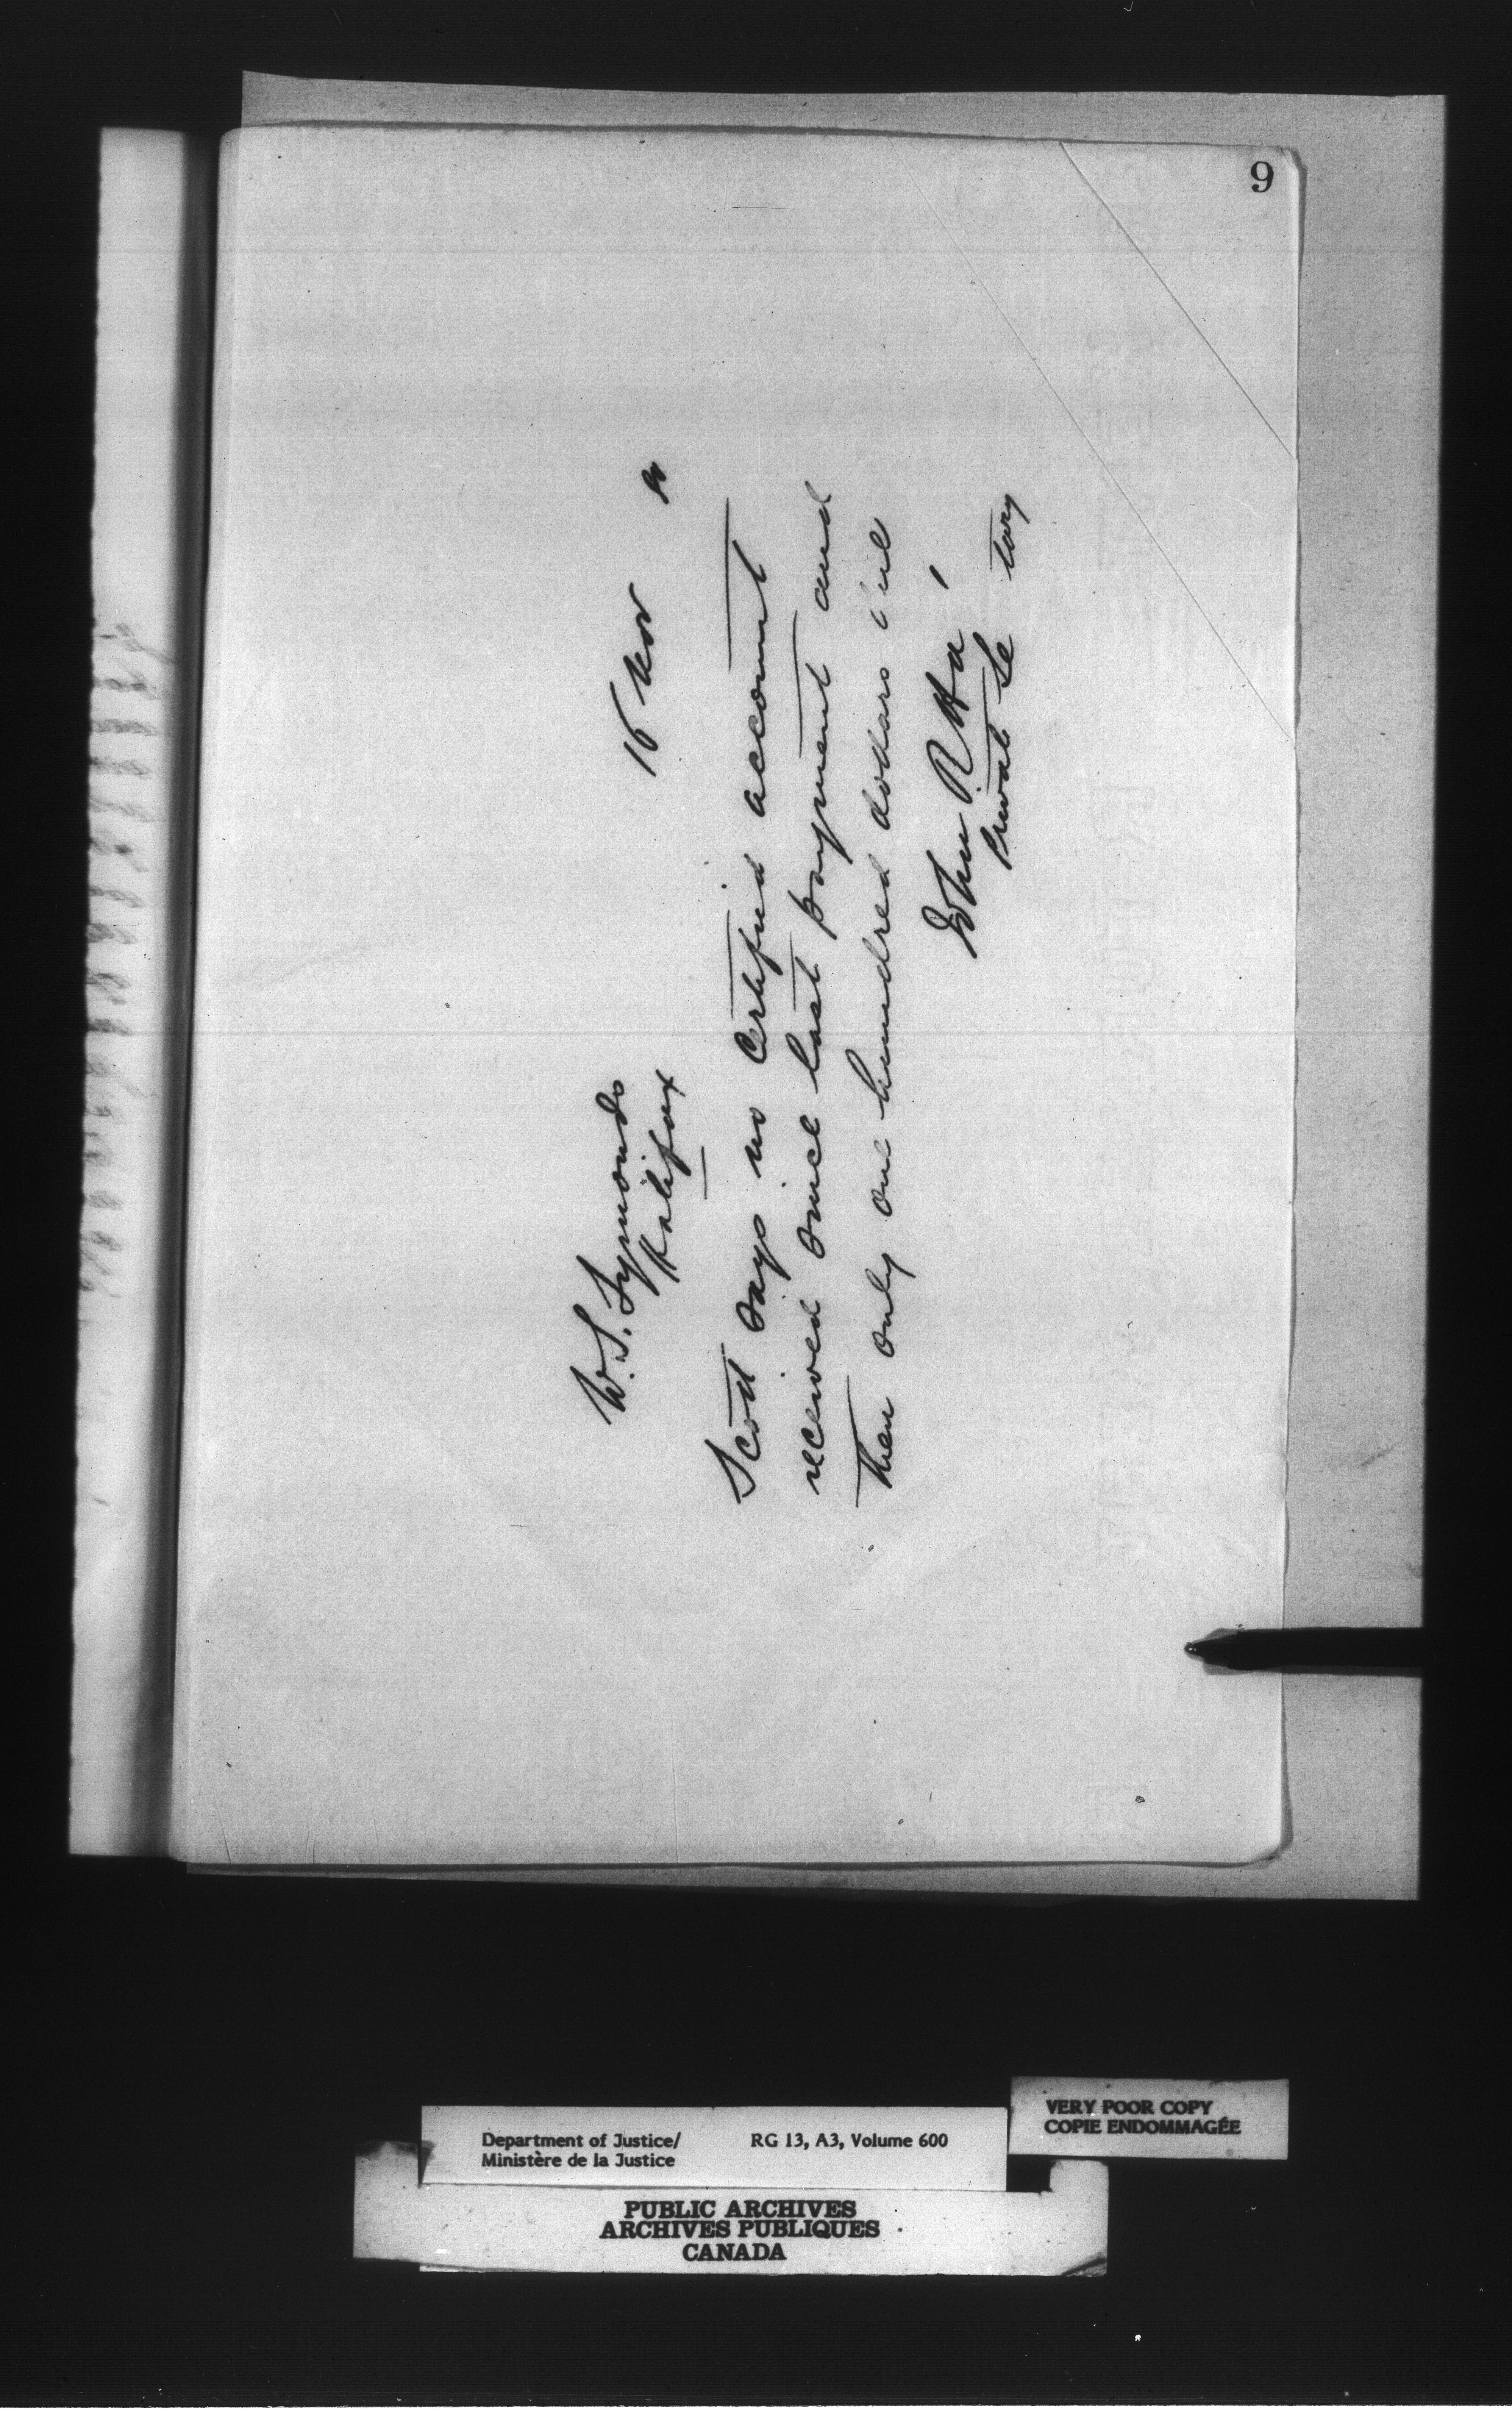 9
16 Nov
W. S. Symonds
Halifax
Scott says no certified account
received since last payment and
then only one hundred dollars due
John R. Ha
Private Se tary
VERY POOR COPY
COPIE ENDOMMAGÉE
Department of Justice/
Ministère de la Justice
RG 13, A3, Volume 600
PUBLIC ARCHIVES
ARCHIVES PUBLIQUES
CANADA